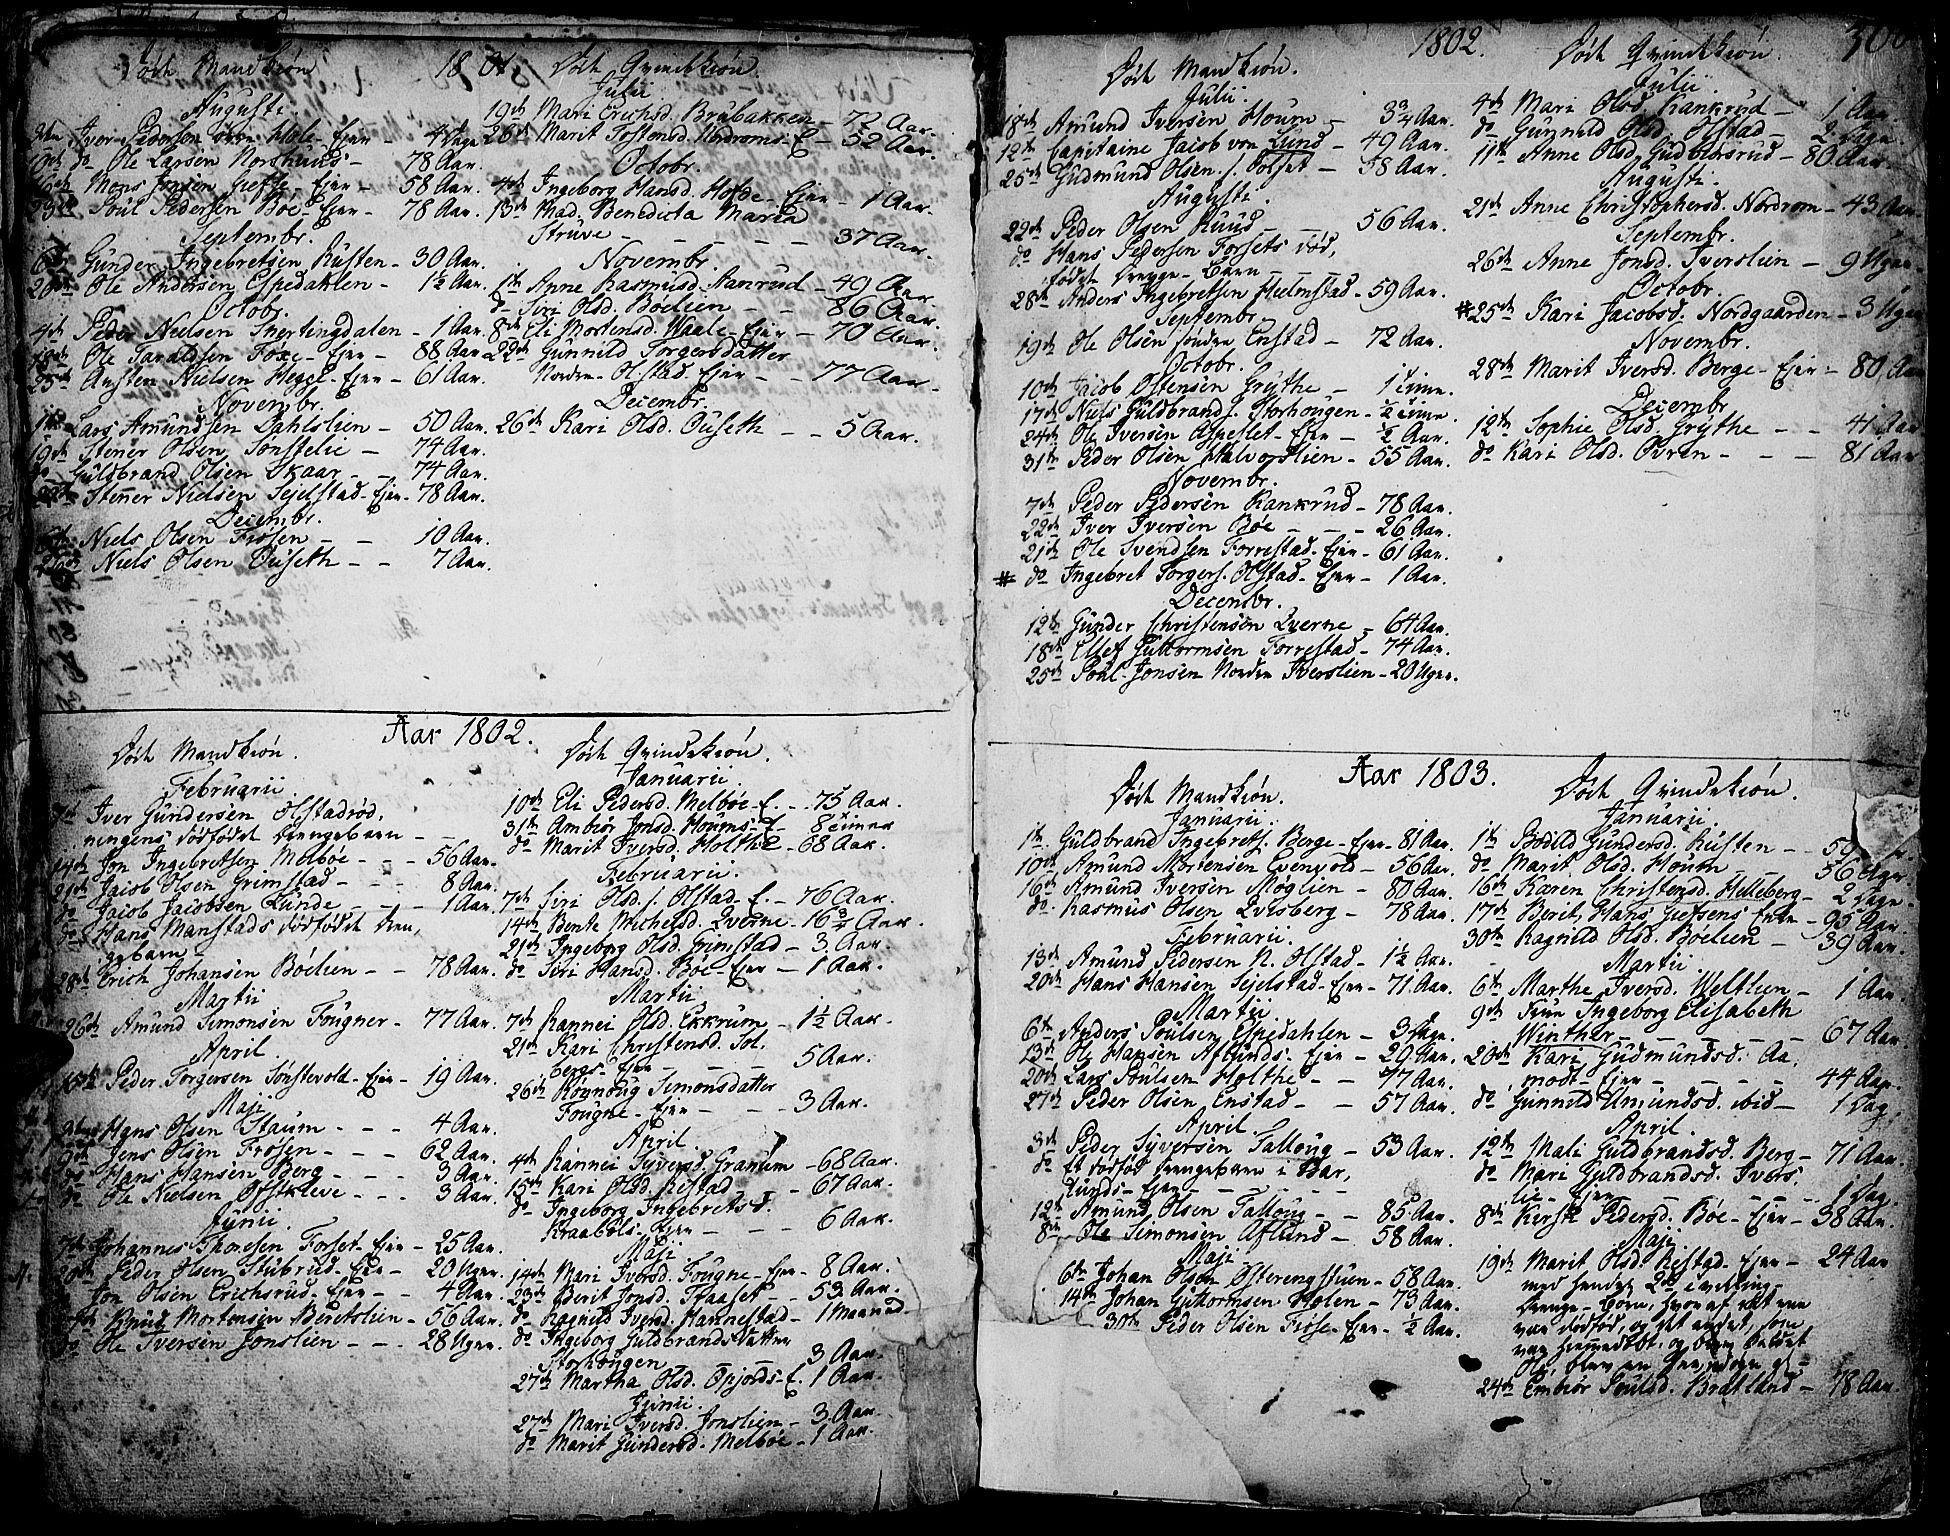 Døde Mandkiøn
1801
Augusti.
Iver Pedersen Hole-Ejer - 4 Dage
do Ole Larsen Norshuus - 78 Aar.
Mons Jensen - Ejer - 58 Aar.
23de Poul Pedersen Bøe-Ejer - 78 Aar.
Septembr.
6te Gunder Ingebretsen Rusten - 30 Aar.
20de Ole Andersen Espedahlen - 1½ Aar.
Octobr.
4de Peder Nielsen Snertingdalen - 1 Aar.
18de Ole Taraldsen Foxe-Ejer - 88 Aar.
25de Austen Nielsen Hegge-Ejer - 61 Aar.
Novembr.
1te Lars Amundsen Dahlslien - 50 Aar.
19de Stener Olsen Sønstelie - 74 Aar.
do Guldbrand Olsen Skaar - - 74 Aar.
Stener Nielsen Sejelstad-Ejer - 78 Aar.
Decembr.
Niels Olsen Frøsen - - 10 Aar.
26de Niels Olsen Ouseth - - 7 Aar.
Døde Qvindekiøn.
Julii.
19de Mari Erichsd. Brubakken - 72 Aar.
26de Marit Tostensd. Nordroms-E - 32 Aar.
Octobr.
4de Ingeborg Hansd. Hofde-Ejer - 1 Aar.
13de Mad. Benedicta Maria
Struve - - - - - 37 Aar.
Novembr.
1te Anne Rasmusd. Aanrud - 49 Aar.
do Siri Olsd. Bøelien - - 86 Aar.
8de Eli Mortensd. Waale-Ejer - 70 Aar.
22de Gunnild Torgersdatter
Norden-Olstad Ejer - - 77 Aar.
Decembr.
26de Kari Olsd. Ouseth - - 5 Aar.
Aar 1802.
Døde Mandkiøn.
Februarii.
7de Iver Gundersen Olstadrød,
ningens dødfødt Drengebarn - -
14de Jon Ingebretsen Melbøe - - - 56 Aar.
21de Jacob Olsen Grimstad - - - 8 Aar.
do Jacob Jacobsen Lunde - - - 1 Aar.
do Hans Manstads dødfødt Dren,
gebarn -
28de Erich Johansen Bøelien - - 78 Aar.
Martii
26de Amund Simonsen Fougner - 77 Aar.
April.
Peder Torgersen Sønstevold-Ejer - 19 Aar.
Maji
Hans Olsen Staum - - - 4 Aar.
9de Jens Olsen Frøsen - - - 62 Aar.
do Hans Hansen Berg - - - 3 Aar.
do Ole Nielsen Offskleve - - - 3 Aar.
Junii.
7de Johannes Thoresen Forset-Ejer - 25 Aar.
20de Peder Olsen Stubrud-Ejer - 20 Uger.
Jon Olsen Erichsrud-Ejer - - 4 Aar.
Knud Mortensen Beretslien - 56 Aar.
do Ole Iversen Jonslien - - - 28 Uger.
Døde Qvindekiøn
Januarii
10de Eli Pedersd. Melbøe-E. - - 75 Aar.
31te Ambiør Jonsd. Houms-E - 8 Timer
do Marit Iversd. Holthe - 68 Aar.
Februarii.
7de Siri Olsd. Olstad-E. - 76 Aar.
14de Bente Michelsd. Qverne - 16¾ Aar.
21de Ingeborg Olsd. Grimstad - 3 Aar.
do Siri Hansd. Bøe-Ejer - 1 Aar.
Martii
7de Rannei Olsd. Ekkrum - 1½ Aar.
21de Kari Christensd. Sol,
bergs-Ejer - - - - 5 Aar.
26de Rønnoug Simonsdatter
Fougne-Ejer - - - 3 Aar.
April.
4de Rannei Syversd. Granum - 68 Aar.
15de Kari Olsd. Ristad - - 67 Aar.
do Ingeborg Ingebretsd.
Kraabøls-Ejer - - - 6 Aar.
Maji
14de Mari Iversd. Fougne-Ejer - 8 Aar.
23de Berit Jonsd. Fraaset - - 53 Aar.
do Ragnild Iversd. Hannestad - 1 Maaned
do Ingeborg Guldbrandsdatter
Storhougen - - - 3 Aar.
27de Martha Olsd. Opjords-E. 1 Aar.
Junii.
27de Mari Iversd. Jonslien - 3 Aar.
do Marit Gundersd. Melbøe - 1 Aar.
1802.
300
Døde Mandkiøn.
Julii.
18de Amund Iversen Houm - 3¾ Aar.
12te Capitaine Jacob von Lund - 49 Aar.
25de Gudmund Olsen Forset - 38 Aar.
Augusti.
22de Peder Olsen Ruud - - 56 Aar.
do Hans Pedersen Forsets død,
fødet Drenge-Barn - - - -
28de Anders Ingebretsen Hielmstad - 59 Aar.
Septembr.
19de Ole Olsen søndre Enstad - 72 Aar.
Octobr.
10de Jacob Ostensen Grythe - 1 Time.
17de Niels Guldbrands. Storhougen - ½ Time.
24de Ole Iversen Aspeslet-Ejer - ½ Aar.
31te Peder Olsen Halvorslien - 55 Aar.
Novembr.
7de Peder Pedersen Rankrud - 78 Aar.
22de Iver Iversen Bøe - - - 26 Aar.
21de Ole Svendsen Forrestad-Ejer - 61 Aar.
# do Ingebret Torgers. Olstad-Ejer - 1 Aar.
Decembr.
12te Gunder Christensen Qverne - 64 Aar.
18de Ellef Guttormsen Forrestad - 74 Aar.
25de Poul Jonsen Norden Iverslien - 20 Uger.
Døde Qvindekiøn.
Julii.
4de Mari Olsd. Rankrud - 1 Aar.
do Gunnild Olsd. Olstad - 2 Uger.
11te Anne Olsd. Gudbiørsrud - 80 Aar.
Augusti.
21de Anne Christophersd. Nordrom - 43 Aar.
Septembr.
26de Anne Jonsd. Iverslien - 9 Uger.
Octobr.
# 25de Kari Jacobsd. Nordgaarden - 3 Uger.
Novembr.
28de Marit Iversd. Berge-Ejer - 80 Aar
Decembr
12te Sophie Olsd. Grythe - - 41 Aar
do Kari Olsd. Ovren - - - 81 Aar
Aar 1803.
Døde Mandkiøn.
Januarii.
1te Guldbrand Ingebrets. Berge-Ejer - 81 Aar.
10de Amund Mortensen Evenvold - 56 Aar.
16de Amund Iversen Moglien - 80 Aar.
do Rasmus Olsen Qvisberg - 78 Aar.
Februarii.
13de Amund Pedersen N. Olstad - 1½ Aar.
20de Hans Hansen Sejelstad-Ejer - 71 Aar.
Martii
6te Anders Poulsen Espedahlen - 3 Uger.
13de Ole Hansen Aflunds-Ejer - 29 Aar.
20de Lars Poulsen Holthe - - 77 Aar.
27de Peder Olsen Enstad - - 57 Aar.
April.
3de Peder Syversen Talloug - 53 Aar.
do Et dødfød Drengebarn i Bar,
lunds-Ejer - - - -
12te Amund Olsen Talloug - - 85 Aar.
8de Ole Simonsen Aflund - 58 Aar.
Maji
6te Johan Olsen Østerengstuen - 58 Aar.
14de Johan Guttormsen Holen - 73 Aar.
30te Peder Olsen Frøse-Ejer - ½ Aar.
Døde Qvindekiøn.
Januarii.
1te Bodild Gundersd. Rusten -
do Marit Olsd. Houm - 56 Uger.
16de Karen Christensd. Helleberg - 2 Dage.
17de Berit Hans Enke - 95 Aar.
30te Ragnild Olsd. Bøelien - 39 Aar.
Martii
6te Marthe Iversd. Weltlien - 1 Aar.
9de Frue Ingeborg Elisabeth
Winther - - - - 67 Aar.
20de Kari Gudmundsd. Aa,
modt-Ejer - - - - 44 Aar.
do Gunnild Amundsd. ibid - 1 Dag.
April
12te Mali Guldbrandsd. Berg - 71 Aar.
do Mari Guldbrandsd. Ivers,
lie-Ejer - - - - 1 Dag.
8de Kersti Pedersd. Bøe-Ejer - 38 Aar.
Maji
19de Marit Olsd. Ristad-Ejer - 24 Aar
med hendes 2de Tvilling-
Drenge-Børn, hvoraf det ene
var dødfød, og det andet, som
var hiemedøbt, og blev kaldet
Ole blev en
24de Embiør Poulsd. Bratland - 78 Aar.